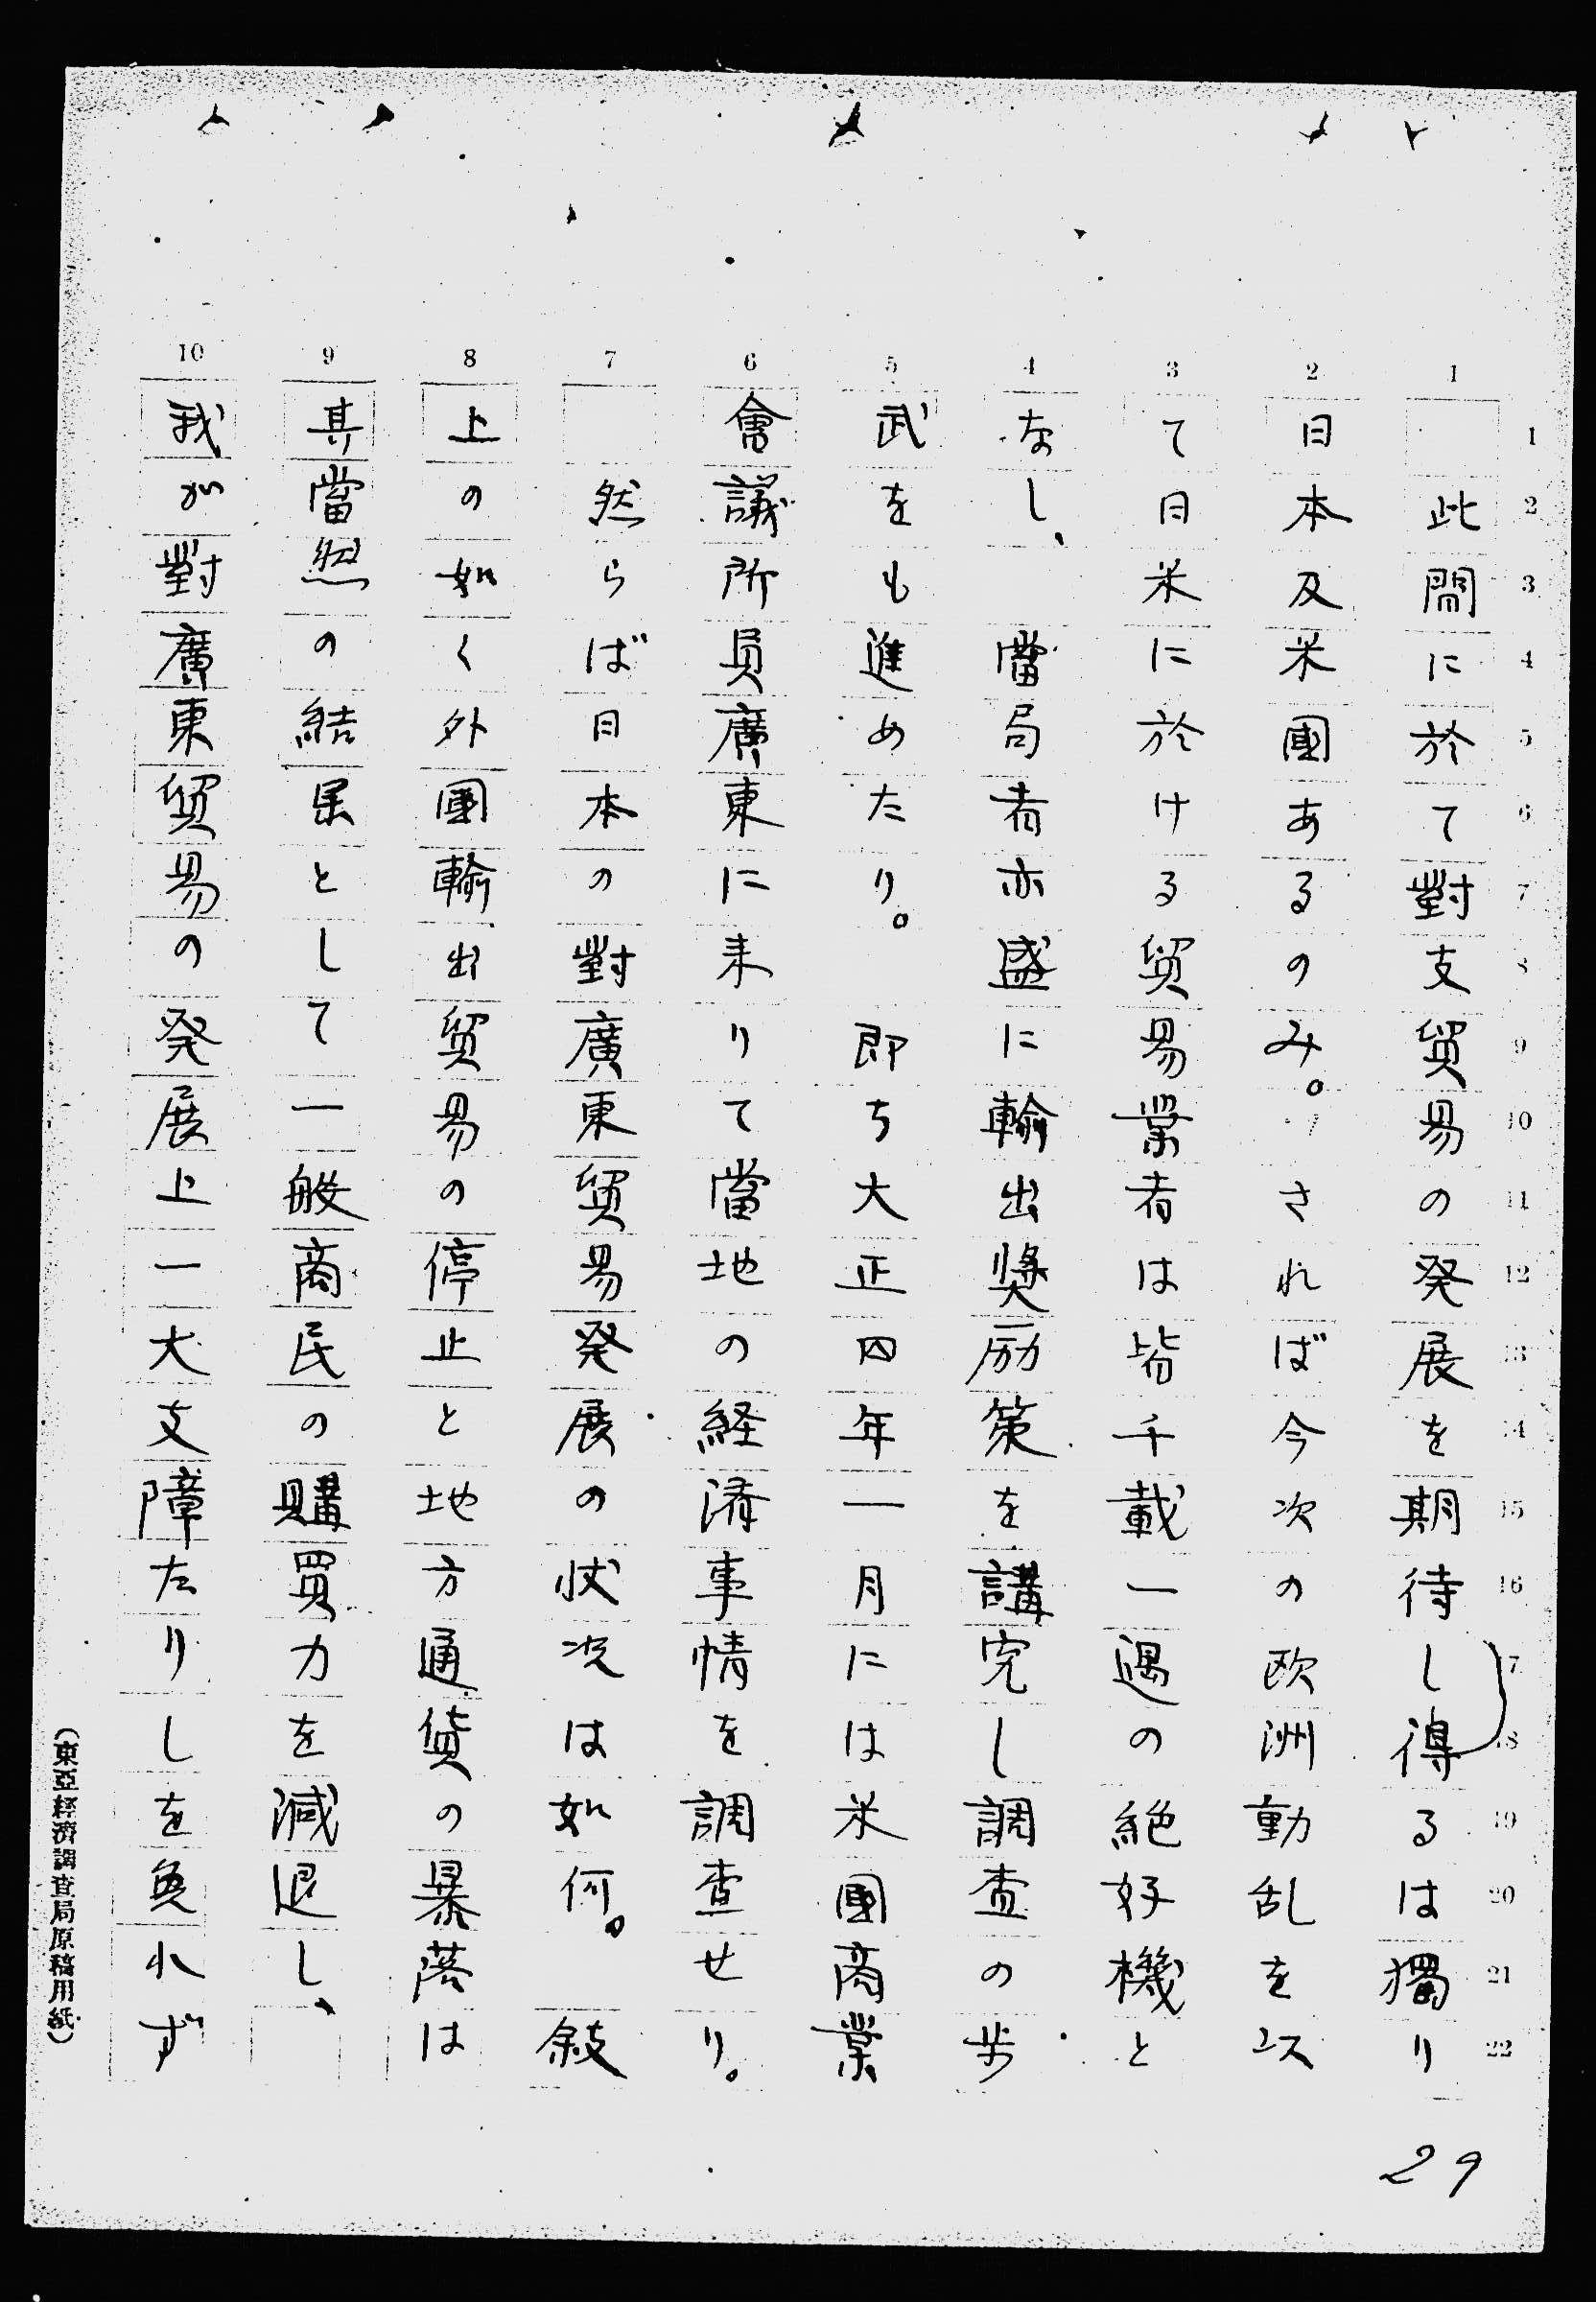 此間に於て對支貿易の発展を期待し得るは獨り
日本及米國あるのみ。されば今次の欧洲動乱を以
て日米に於ける貿易業者は皆千載一遇の絶好機と
なし、當局者亦盛に輸出奨励策を講究し調査の歩
武をも進めたり。即ち大正四年一月には米國商業
會議所員廣東に来りて當地の経済事情を調査せり。
然らば日本の對廣東貿易発展の状况は如何。敍
上の如く外國輸出貿易の停止と地方通貨の暴落は
其當然の結果として一般商民の購買力を減退し、
我が對廣東貿易の発展上一大支障たりしを免れず
(東亞經濟調査局原稿用紙)
1 2 3 4 5 6 7 8 9 10
1 2 3 4 5 6 7 8 9 10 11 12 13 14 15 16 17 18 19 20 21 22
29